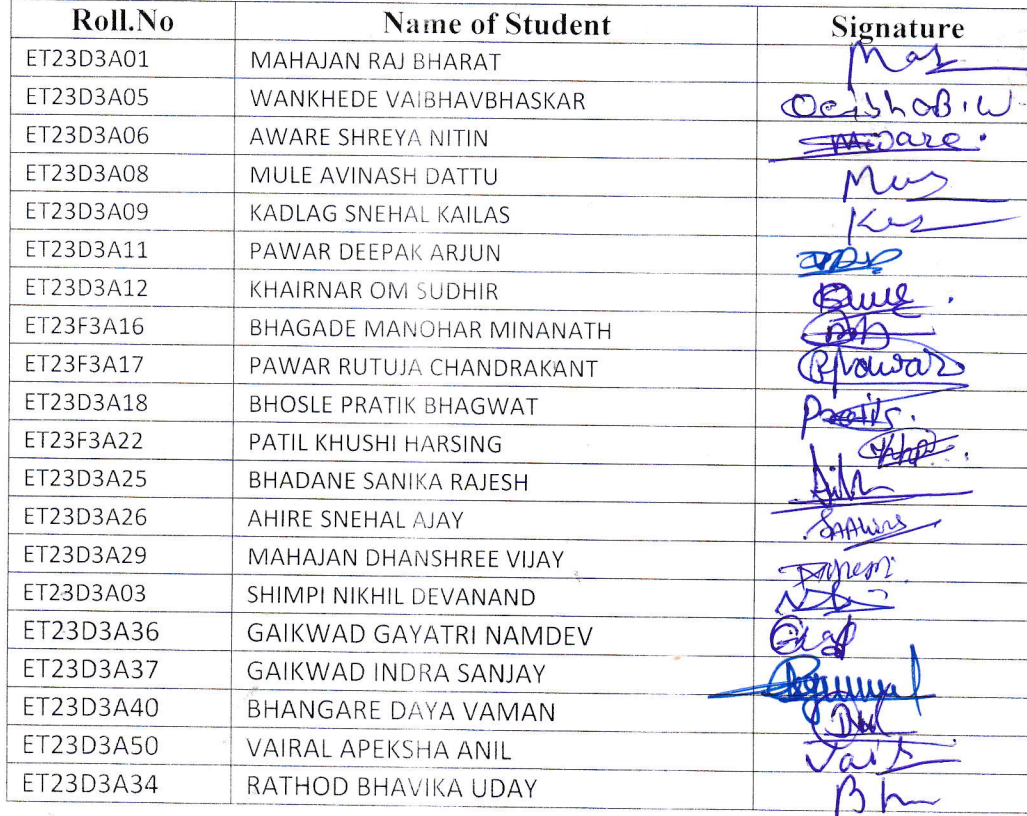 Roll.No Name of Student Signature
ET23D3A01 MAHAJAN RAJ BHARAT
ET23D3A05 WANKHEDE VAIBHAVBHASKAR
ET23D3A06 AWARE SHREYA NITIN
ET23D3A08 MULE AVINASH DATTU
ET23D3A09 KADLAG SNEHAL KAILAS
ET23D3A11 PAWAR DEEPAK ARJUN
ET23D3A12 KHAIRNAR OM SUDHIR
ET23F3A16 BHAGADE MANOHAR MINANATH
ET23F3A17 PAWAR RUTUJA CHANDRAKANT RPawar
ET23D3A18 BHOSLE PRATIK BHAGWAT
ET23F3A22 PATIL KHUSHI HARSING
ET23D3A25 BHADANE SANIKA RAJESH
ET23D3A26 AHIRE SNEHAL AJAY
ET23D3A29 MAHAJAN DHANSHREE VIJAY
ET23D3A03 SHIMPI NIKHIL DEVANAND
ET23D3A36 GAIKWAD GAYATRI NAMDEV
ET23D3A37 GAIKWAD INDRA SANJAY
ET23D3A40 BHANGARE DAYA VAMAN
ET23D3A50 VAIRAL APEKSHA ANIL
ET23D3A34 RATHOD BHAVIKA UDAY